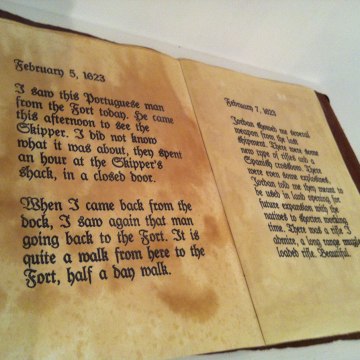 February 5, 1623
I saw this Portuguese man
from the Fort today. He came
this afternoon to see the
Skipper. I did not know
what it was about, they spent
an hour at the Skipper's
shack, in a closed door.
When I came back from the
dock, I saw again that man
going back to the Fort. It is
quite a walk from here to the
Fort, half a day walk.
February 7, 1623
Jordan showed me several
weapon from the last
shipment. There were some
new type of rifles and a
Spanish crossbow. There
were even some explosives.
Jordan told me they meant to
be used in land opening for
future expansion with the
natives to shorten working
time. There was a rifle I
admire, a long range muzzle
loaded rifle. Beautiful.